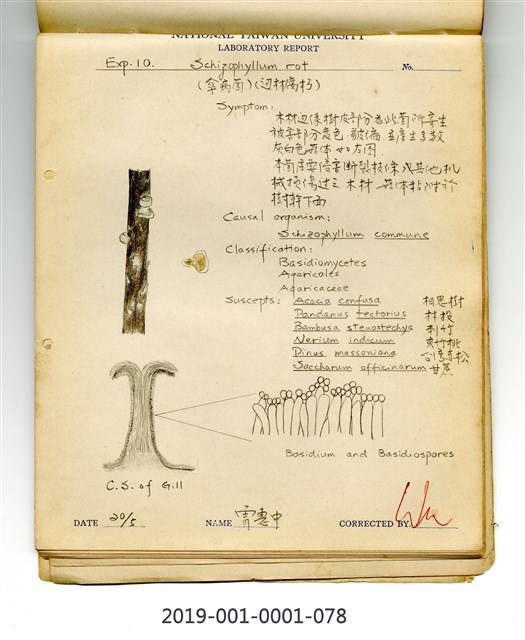 NATIONAL TAIWAN UNIVERSITY
LABORATORY REPORT
Exp. 10. Schizophyllum rot No.
(傘病菌)(辺材腐朽)
Symptom:
木材边像樹皮部分為此菌所寄生
被害部分變色.皺縮.並產生多數
灰白色菌体如左图.
本菌主要侵害断裂枝條及其他机
械损傷过之木材 菌体粘附於
樹幹下面
Causal organism:
Schizophyllum commune
Classification:
Basidiomycetes
Agaricales
Agaricaceae
Suscepts: Acacia confusa 相思樹
Pandanus tectorius 林投
Bambusa stenostachya 刺竹
Nerium indicum 夾竹桃
Pinus massoniana 台湾赤松
Saccharum officinarum 甘蔗
Basidium and Basidiospores
C.S. of Gill
DATE 20/5 NAME 賈惠中 CORRECTED BY
2019-001-0001-078